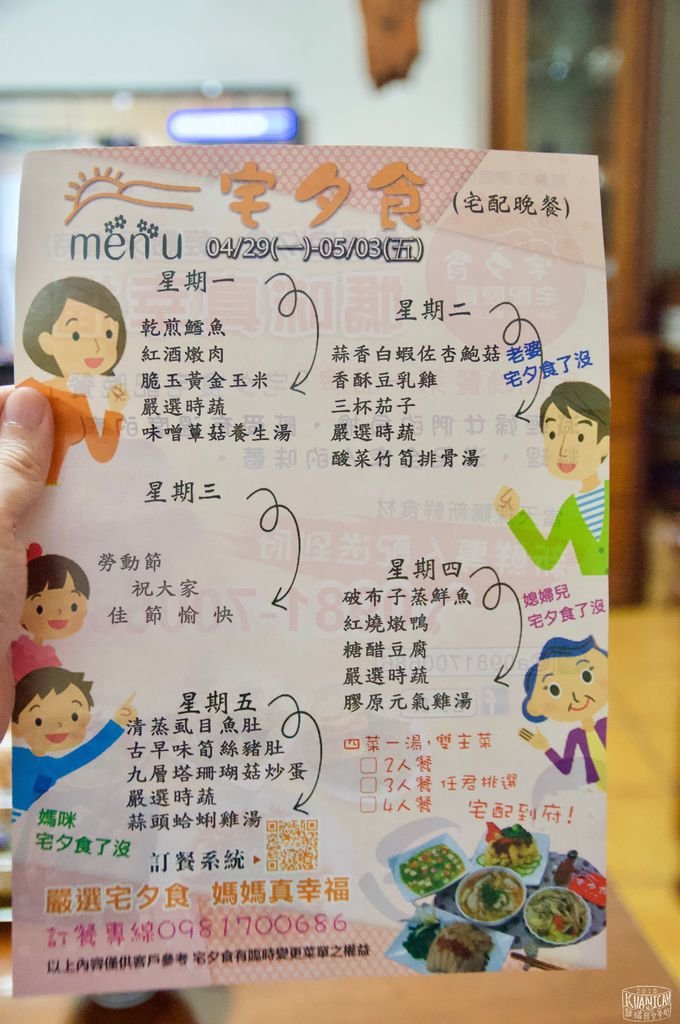 宅夕食
(宅配晚餐)
menu
04/29(一)-05/03(五)
星期一
乾煎鱈魚
紅酒燉肉
脆玉黃金玉米
嚴選時蔬
味噌蕈菇養生湯
星期二
蒜香白蝦佐杏鮑菇
香酥豆乳雞
三杯茄子
嚴選時蔬
酸菜竹筍排骨湯
老婆
宅夕食了沒
星期三
勞動節
祝大家
佳節愉快
星期四
破布子蒸鮮魚
紅燒燉鴨
糖醋豆腐
嚴選時蔬
膠原元氣雞湯
媳婦兒
宅夕食了沒
星期五
清蒸虱目魚肚
古早味筍絲豬肚
九層塔珊瑚菇炒蛋
嚴選時蔬
蒜頭蛤蜊雞湯
媽咪
宅夕食了沒
四菜一湯,雙主菜
□2人餐
□3人餐 任君挑選
□4人餐
宅配到府!
訂餐系統
嚴選宅夕食 媽媽真幸福
訂餐專線0981700686
以上內容僅供客戶參考 宅夕食有臨時變更菜單之權益
2018
KUANICAN